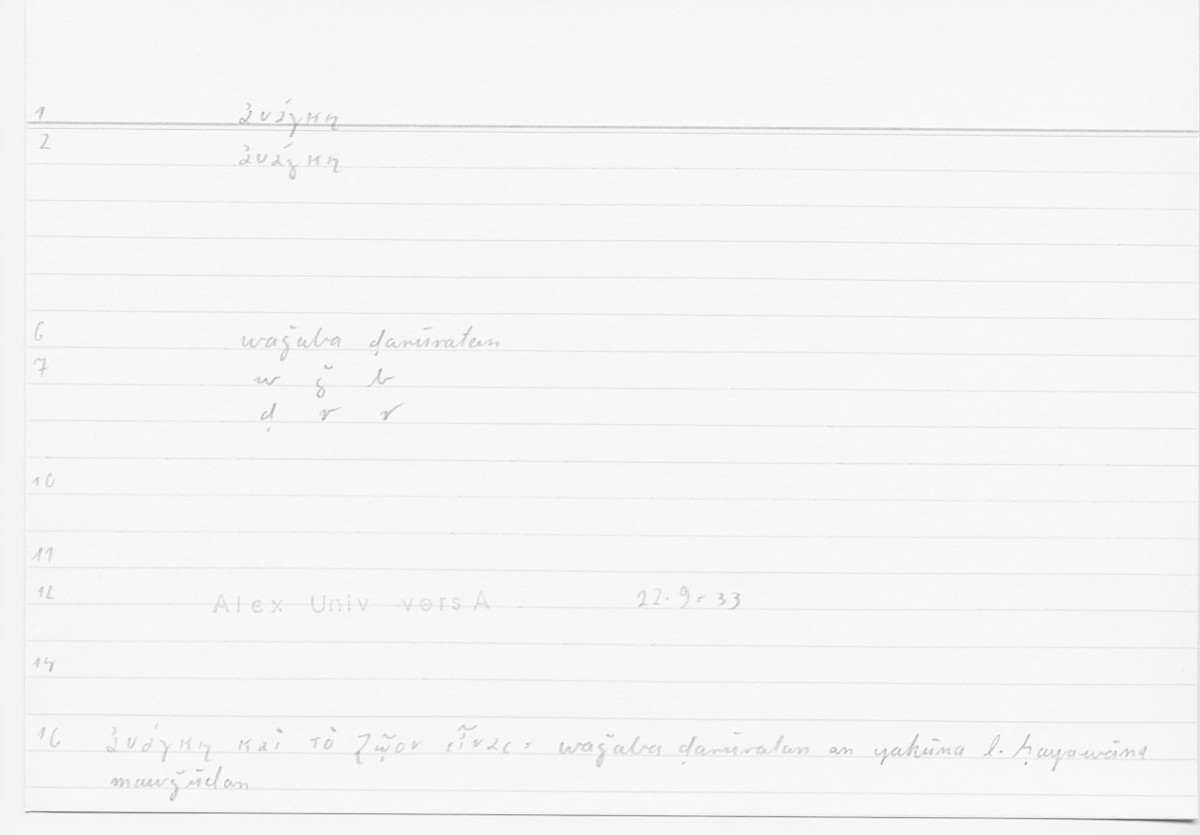 1 ἀνάγκη
2 ἀνάγκη
6 waǧaba ḍarūratan
7 w ǧ b
ḍ r r
10
11
12 Alex Univ vers A 22.9 = 33
14
16 ἀνάγκη καὶ τὸ ζῷον εἶναι = waǧaba ḍarūratan an yakūna l-ḥayawāna
mawǧūdan